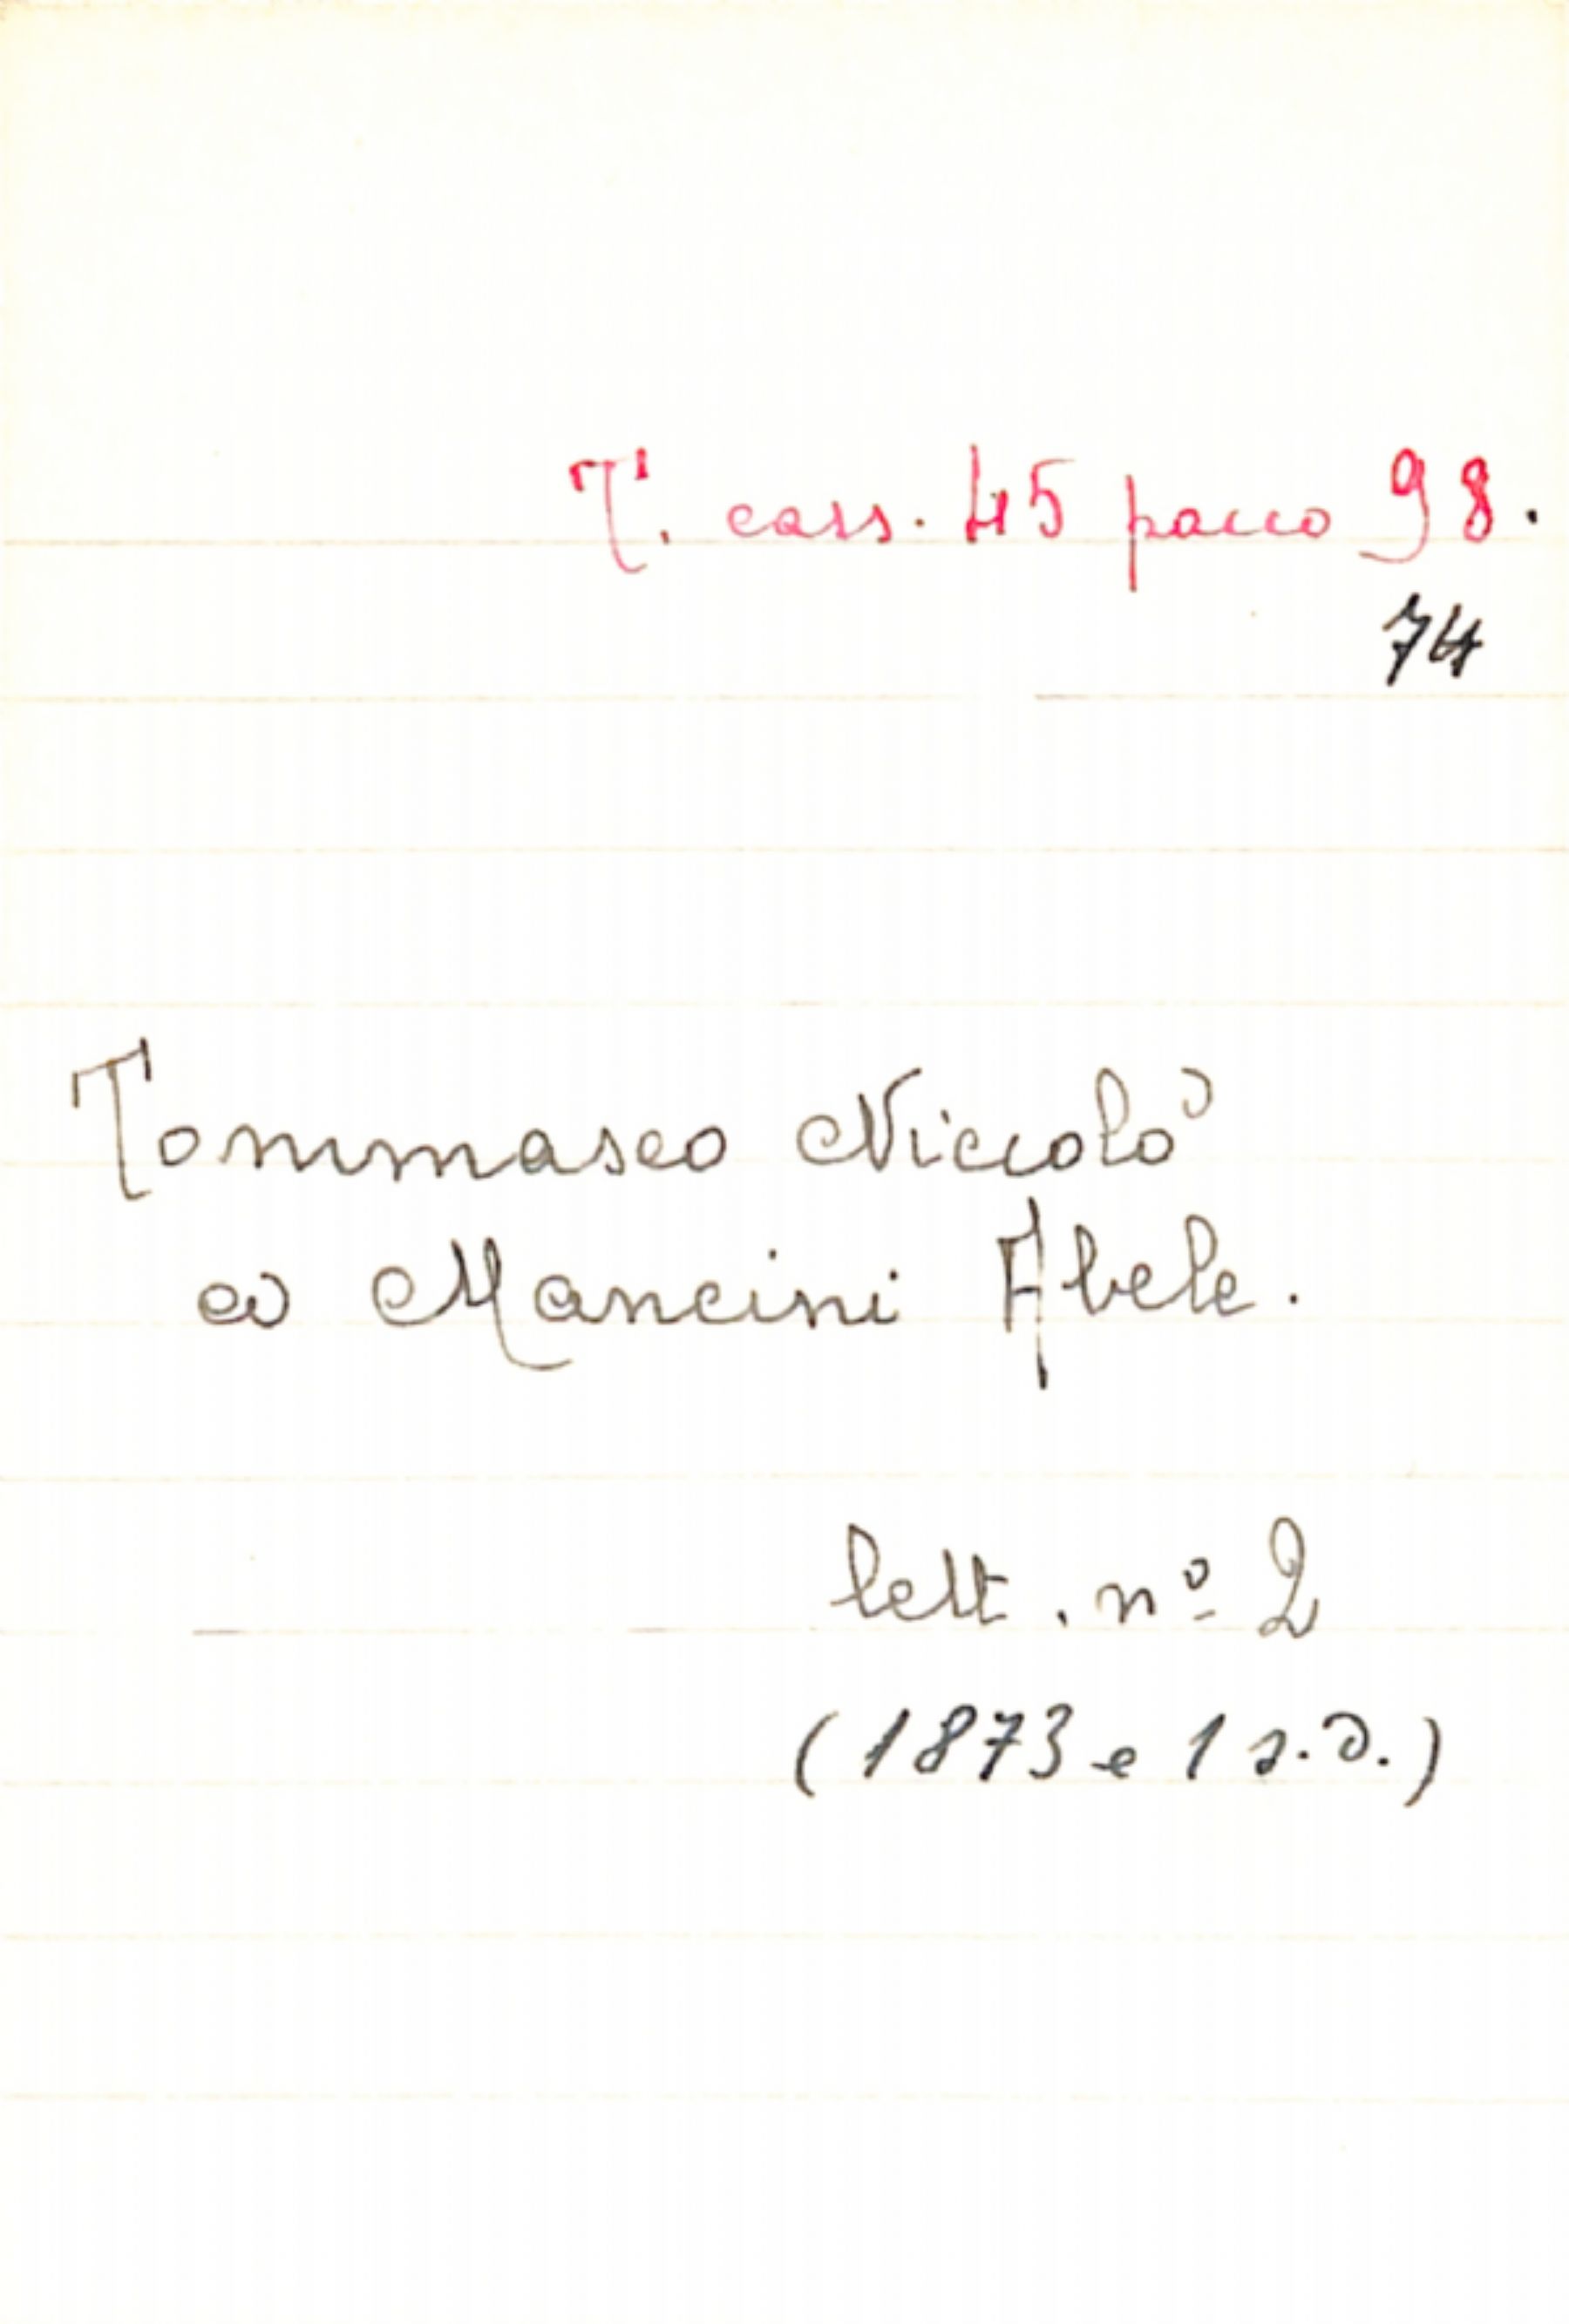 T. cass. 45 pacco 98.
74
Tommaseo Niccolò
a Mancini Abele.
lett. nº 2
(1873 e 1 s.d.)